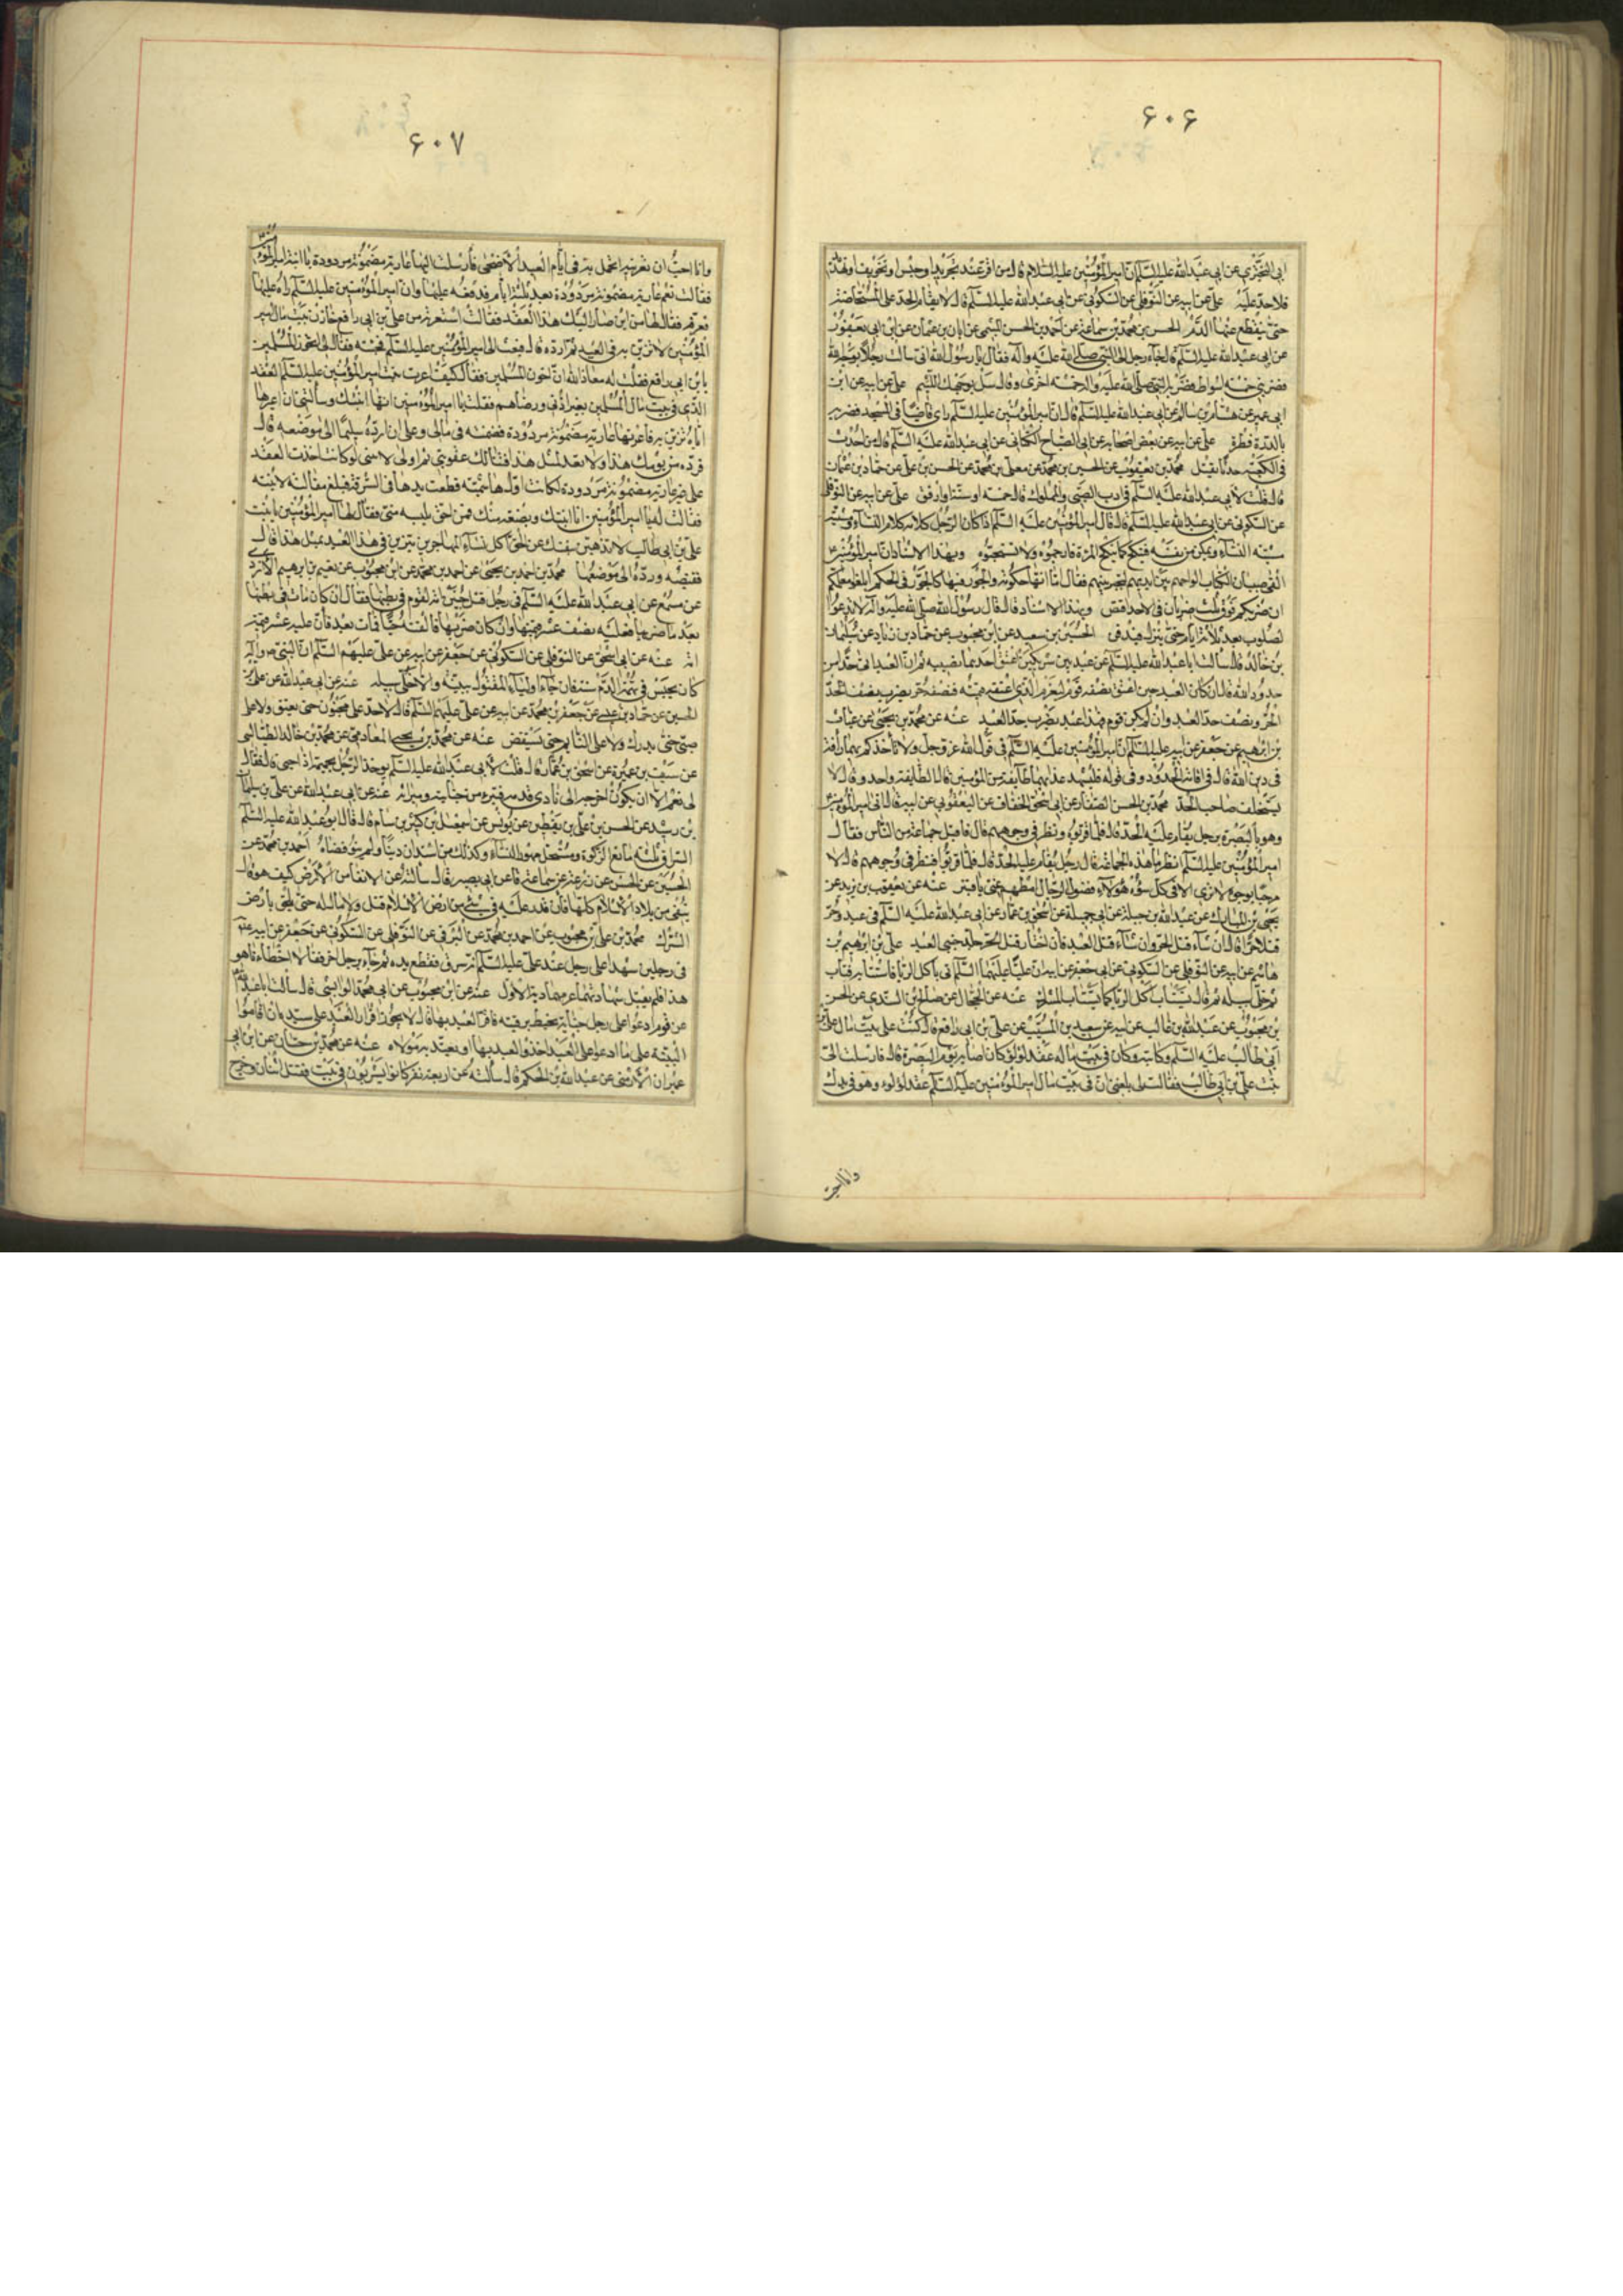 ۶۰۶
ابی البختری عن ابی عبدالله علیه السلام ان امیر المؤمنین علیه السلام قال من اقر عند تجرید او حبس او تخویف او تهدد
فلا حد علیه علی عن ابیه عن النوفلی عن السکونی عن ابی عبد الله علیه السلم قال لا یقام الحد علی المستحاضة
حتی ینقطع عنها الدم الحسن بن محمد بن سماعة عن احمد بن الحسن المیثمی عن ابان بن عثمان عن ابن ابی یعفور
عن ابی عبد الله علیه السلم قال جاء رجل الی النبی صلی الله علیه واله فقال یا رسول الله انی سالت رجلا بوجه الله
فضربنی خمسة اسواط فضربه النبی صلی الله علیه واله خمسة اخری وقال سل بوجهک اللئیم علی عن ابیه عن ابن
ابی عمیر عن هشام بن سالم عن ابی عبد الله علیه السلم قال ان امیر المؤمنین علیه السلم رای قاصا فی المسجد فضربه
بالدرة وطرده علی عن ابیه عن بعض اصحابه عن ابی الصباح الکنانی عن ابی عبد الله علیه السلم قال من احدث
فی الکعبة حدثا یقتل محمد بن یعقوب عن الحسین بن محمد عن معلی بن محمد عن الحسن بن علی عن حماد بن عثمان
قال قلت لابی عبد الله علیه السلم فی ادب الصبی والمملوک قال خمسة او ستة وارفق علی عن ابیه عن النوفلی
عن السکونی عن ابی عبد الله علیه السلم قال قال امیر المؤمنین علیه السلم اذا کان الرجل کلامه کلام النساء ومشیته
مشیة النساء ویمکن من نفسه فینکح کما ینکح المرءة فارجموه ولا تستحیوه وبهذا الاسناد ان امیر المؤمنین ع
القی صبیان الکتاب الواحهم بین ایدیهم لیخیر بینهم فقال اما انها حکومة والجور فیها کالجور فی الحکم ابلغوا معلمکم
ان ضربکم فوق ثلث ضربات فی الادب اقتص وبهذا الاسناد قال قال رسول الله صلی الله علیه واله لا تدعوا
المصلوب بعد ثلاثة ایام حتی ینزل فیدفن الحسین بن سعید عن ابن محبوب عن حماد بن زیاد عن سلیمان
بن خالد قال سالت ابا عبد الله علیه السلم عن عبد بین شریکین اعتق احدهما نصیبه ثم ان العبد اتی حدا من
حدود الله قال ان کان العبد حین اعتق نصفه قوم لیغرم الذی اعتقه قیمته فنصفه حر یضرب نصف الحد
الحر ونصف حد العبد وان لم یکن قوم فهذا عبد یضرب حد العبد عنه عن محمد بن یحیی عن غیاث
بن ابرهیم عن جعفر عن ابیه علیه السلم ان امیر المؤمنین علیه السلم فی قول الله عز وجل ولا تاخذکم بهما رافة
فی دین الله قال فی اقامة الحدود وفی قوله فلیشهد عذابهما طایفة من المؤمنین قال الطایفة واحد وقال لا
یستحلف صاحب الحد محمد بن الحسن الصفار عن ابی اسحق الخفاف عن الیعقوبی عن ابیه قال اتی امیر المؤمنین ع
وهو بالبصرة برجل یقام علیه الحد قال فلما قربوه ونظر فی وجوههم قال فاقبل جماعة من الناس فقال
امیر المؤمنین علیه السلم انظر ما هذه الجماعة فقال رجل یقام علیه الحد قال فلما قربوا فنظر فی وجوههم قال لا
مرحبا بوجوه لا تری الا فی کل سوء هؤلاء فضول الرجال امطهم عنی یا قنبر عنه عن یعقوب بن یزید عن
یحیی بن المبارک عن عبد الله بن جبلة عن ابی جمیلة عن اسحق بن عمار عن ابی عبد الله علیه السلم فی عبد وحر
قتلا حرا قال ان شاء قتل الحر وان شاء قتل العبد فان اختار قتل الحر جلد جنبی العبد علی بن ابرهیم بن
هاشم عن ابیه عن النوفلی عن السکونی عن ابی جعفر عن ابیه ان علیا علیهما السلم اتی باکل الربا فاستتابه فتاب
ثم خلی سبیله ثم قال یستتاب آکل الربا کما یستتاب المشرک عنه عن الحجال عن صالح بن السندی عن الحسن
بن محبوب عن عبد الله بن غالب عن ابیه عن سعید بن المسیب عن علی بن ابی رافع قال کنت علی بیت مال علی بن
ابی طالب علیه السلم وکاتبه وکان فی بیت ماله عقد لؤلؤ کان اصابه یوم البصرة قال فارسلت الی
بنت علی بن ابی طالب فقالت لی بلغنی ان فی بیت مال امیر المؤمنین علیه السلم عقد لؤلؤ وهو فی یدک
وانا احب
۶۰۷
وانا احب ان تعیرنیه اتجمل به فی ایام العید الاضحی فارسلت الیها عاریة مضمونة مردودة یا ابنة امیر المؤمنین
فقالت نعم عاریة مضمونة مردودة بعد ثلثة ایام فدفعته علیها وان امیر المؤمنین علیه السلم راه علیها
فعرفه فقال لها من این صار الیک هذا العقد فقالت استعرته من علی بن ابی رافع خازن بیت مال امیر
المؤمنین لاتزین به فی العید ثم ارده قال فبعث الی امیر المؤمنین علیه السلم فجئته فقال لی اتخون المسلمین
یا بن ابی رافع فقلت له معاذ الله ان اخون المسلمین فقال کیف اعرت بنت امیر المؤمنین علیه السلم العقد
الذی فی بیت مال المسلمین بغیر اذنی ورضاهم فقلت یا امیر المؤمنین انها ابنتک وسألتنی ان اعیرها
ایاه تتزین به فاعرتها عاریة مضمونة مردودة فضمنته فی مالی وعلی ان ارده سلیما الی موضعه قال
فرده من یومک هذا ولا تعد لمثل هذا فتنالک عقوبتی ثم اولی لابنتی لو کانت اخذت العقد
علی غیر عاریة مضمونة مردودة لکانت اول هاشمیة قطعت یدها فی السرقة فبلغ مقالته لابنته
فقالت له یا امیر المؤمنین انا ابنتک وبضعة منک فمن احق بلبسه منی فقال لها امیر المؤمنین یا بنت
علی بن ابی طالب لا تذهبن بنفسک عن الحق اکل نساء المهاجرین تتزین فی هذا العید بمثل هذا قال
فقبضته ورددته الی موضعها محمد بن احمد بن یحیی عن احمد بن محمد عن ابن محبوب عن نعیم بن ابرهیم الازدی
عن مسمع عن ابی عبد الله علیه السلم فی رجل قتل جنین امة لقوم فی بطنها فقال ان کان مات فی بطنها
بعد ما ضربها فعلیه نصف عشر قیمتها وان کان ضربها فالقته حیا فمات بعد فان علیه عشر قیمة
امه عنه عن ابی اسحق عن النوفلی عن السکونی عن جعفر عن ابیه عن علی علیهم السلم ان النبی ص واله
کان یحبس فی تهمة الدم ستة فان جاء اولیاء المقتول ببینة والا خلی سبیله عنه عن ابی عبد الله عن علی بن
الحسین عن حماد بن عیسی عن جعفر بن محمد عن ابیه عن علی علیهم السلم قال لا حد علی مجنون حتی یفیق ولا علی
صبی حتی یدرک ولا علی النایم حتی یستیقظ عنه عن محمد بن یحیی المعاذی عن محمد بن خالد الطیالسی
عن سیف بن عمیرة عن اسحق بن عمار قال قلت لابی عبد الله علیه السلم یوخذ الرجل بحمیمه اذا جنی قال فقال
لی نعم الا ان یکون اخرجه الی نادی قومه فتبرء من جنایته ومیراثه عنه عن ابی عبد الله عن علی بن سلیمان
بن رشید عن الحسن بن علی بن یقطین عن یونس عن اسمعیل بن کثیر بن سام قال قال ابو عبد الله علیه السلم
السراق ثلثة مانع الزکوة ومستحل مهور النساء وکذلک من استدان دینا ولم ینو قضاءه احمد بن محمد عن
الحسین عن الحسن عن زرعة عن سماعة عن ابی بصیر قال سالته عن الانفاء من الارض کیف هو قال
ینفی من بلاد الاسلام کلها فان قدر علیه فی شیء من ارض الاسلام قتل ولا امان له حتی یلحق بارض
الشرک محمد بن علی بن محبوب عن احمد بن محمد عن البرقی عن النوفلی عن السکونی عن جعفر عن ابیه عن
فی رجلین شهدا علی رجل عند علی علیه السلم انه سرق فقطع یده ثم جاء برجل اخر فقالا اخطاءنا هو
هذا فلم یقبل شهادتهما غرمهما دیة الاول عنه عن ابن محبوب عن ابی محمد الوابشی قال سالت ابا عبد الله ع
عن قوم ادعوا علی رجل جنایة تحیط برقبته فاقر العبد بها قال لا یجوز اقرار العبد علی سیده فان اقاموا
البینة علی ما ادعوا علی العبد اخذوا العبد بها او یفتدیه مولاه عنه عن محمد بن حسان عن ابن ابی
عمران الارمنی عن عبد الله بن الحکم قال سألته عن اربعة نفر کانوا یشربون فی بیت فقتل اثنان وجرح